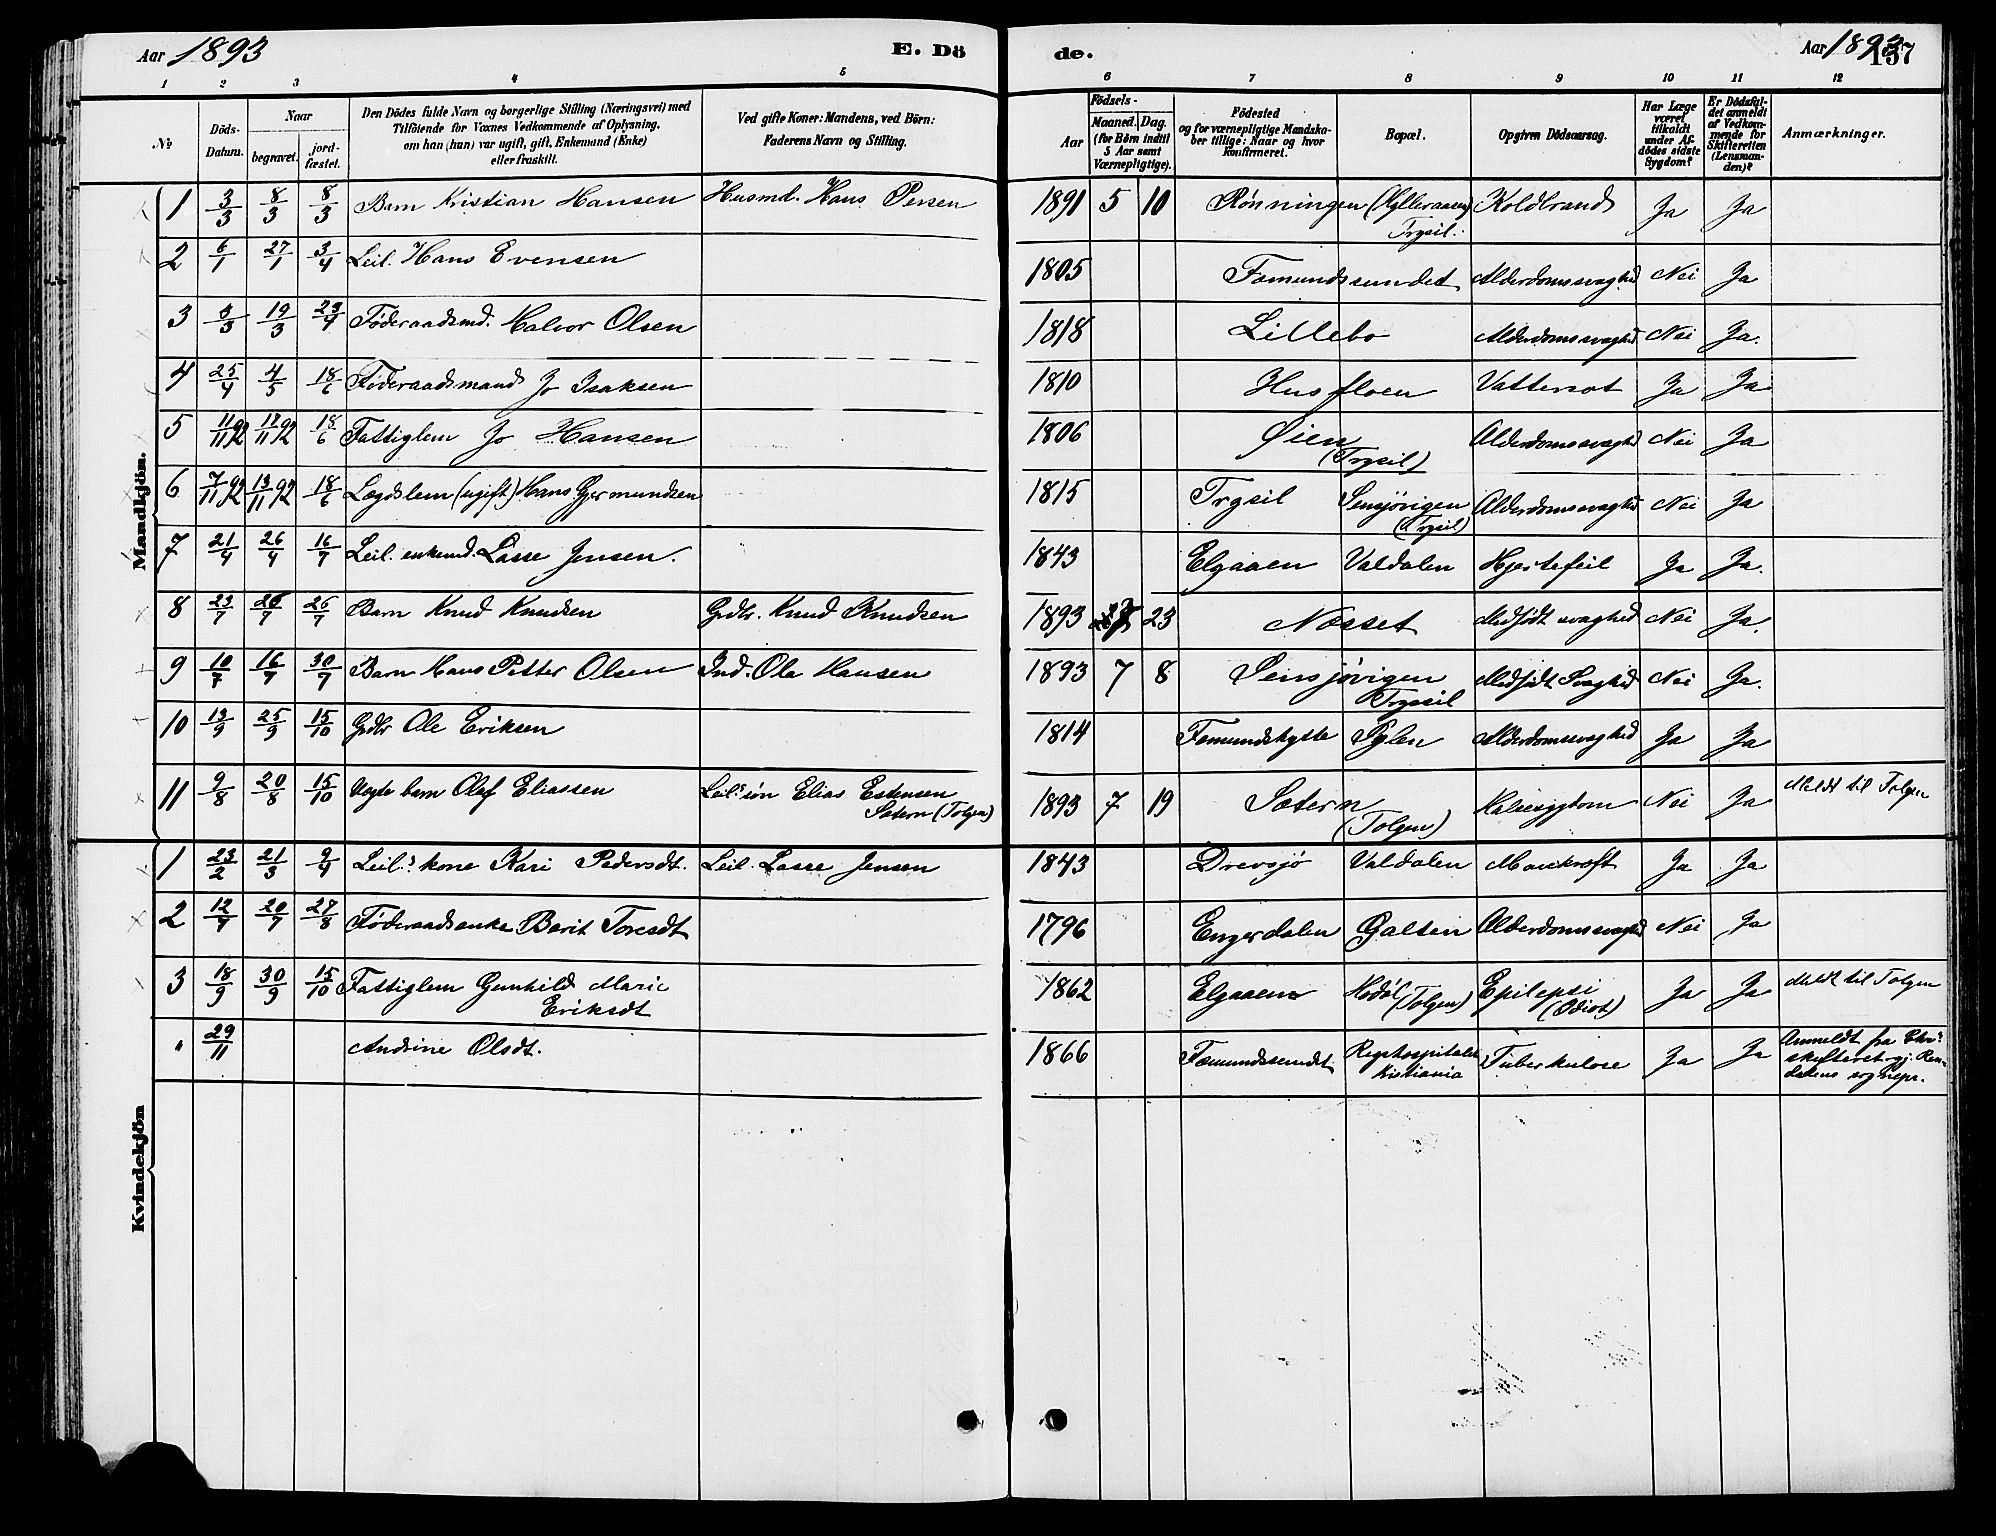 Aar 1893 E. Dö
de. Aar 1893 137
1 2 3 4 5 6 7 8 9 10 11 12
№ Döds-Datum. Naar begravet. jord-fæstet. Den Dödes fulde Navn og borgerlige Stilling (Næringsvei) med Tilföiende for Voxnes Vedkommende af Oplysning, om han (hun) var ugift, gift, Enkemand (Enke) eller fraskilt. Ved gifte Koner: Mandens, ved Börn: Faderens Navn og Stilling. Aar Födsels- Maaned. Dag. (for Börn indtil 5 Aar samt Værnepligtige). Födested og for værnepligtige Mandska-ber tillige: Naar og hvor Konfirmeret. Bopæl. Opgiven Dödsaarsag. Har Læge været tilkaldt under Af-dödes sidste Sygdom? Er Dödsfal-det anmeldt af Vedkom-mende for Skifteretten (Lensman-den)? Anmærkninger.
Mandkjön.
1 3/3 8/3 8/3 Barn Kristian Hansen Husmd. Hans Persen 1891 5 10 Rönningen (Hylleraasen) Trysil. Koldbrand Ja Ja
2 6/1 27/1 3/4 Leil. Hans Evensen 1805 Fæmundssundet Alderdomssvaghed Nei Ja
3 8/3 19/3 23/4 Föderaadsmd. Halvor Olsen 1818 Lillebo Alderdomssvaghed Nei Ja.
4 25/4 4/5 18/6 Föderaadsmand Jo Isaksen 1810 Husfloen Vattersot Ja Ja
5 11/11 92 17/11 92 18/6 Fattiglem Jo Hansen 1806 Øien (Trysil) Alderdomssvaghed Nei Ja
6 7/11 92 13/11 92 18/6 Lægdslem (ugift) Hans Gjermundsen 1815 Trysil Sensjövigen (Trysil) Alderdomssvaghed Nei Ja
7 21/4 26/4 16/7 Leil. enkemd. Lasse Jensen. 1843 Elgaaen Valdalen Hjertefeil Ja Ja.
8 23/7 26/7 26/7 Barn Knud Knudsen Grdbr. Knud Knudsen 1893 7 23 Næsset Medfödt svaghed Nei Ja.
9 10/7 16/7 30/7 Barn Hans Petter Olsen Ind. Ole Hansen 1893 7 8 Sensjövigen Trysil Medfödt Svaghed Nei Ja.
10 13/9 25/9 15/10 Grdbr Ole Eriksen 1814 Fæmundshytte Sylen Alderdomssvaghed Ja Ja
11 9/8 20/8 15/10 Uægte barn Olaf Eliassen Leil.s sön Elias Estensen Sætern (Tolgen) 1893 7 19 Sætern (Tolgen) Halssygdom Nei Ja Meldt til Tolgen
Kvindekjön
1 23/2 21/3 9/4 Leil.s kone Kari Pedersdt. Leil. Lasse Jensen 1843 Drevsjö Valdalen Mavekræft Ja Ja
2 12/7 20/7 27/8 Föderaadsenke Berit Toresdt 1796 Engerdalen Galten Alderdomssvaghed Nei Ja
3 18/9 30/9 15/10 Fattiglem Gunhild Marie Eriksdt 1862 Elgaaen Hodöl (Tolgen) Epilepsi (Idiot) Ja Ja Meldt til Tolgen
" 29/11 Andrine Olsdt. 1866 Fæmundssundet Rigshospitalet Kristiania Tuberkulose Ja Ja Anmeldt fra Chra skifteret gj. Ren-dalens sognepr.